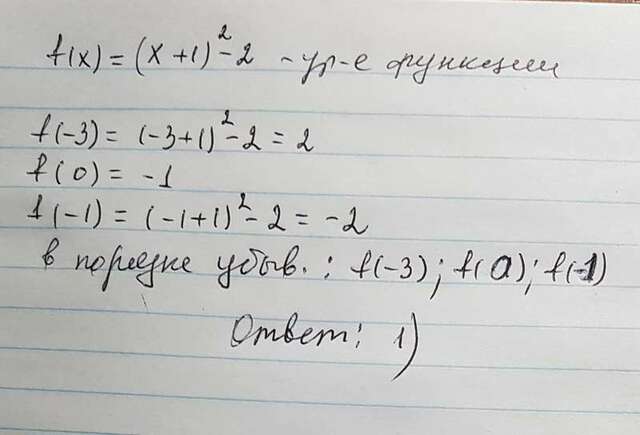 f(x) = (x+1)² - 2 - ур-е функции
f(-3) = (-3+1)² - 2 = 2
f(0) = -1
f(-1) = (-1+1)² - 2 = -2
в порядке убыв.: f(-3); f(0); f(-1)
Ответ: 1)